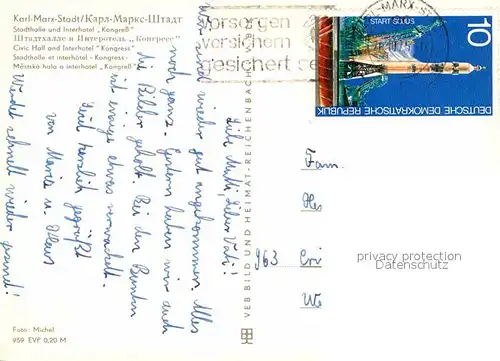 Karl-Marx-Stadt/Карл-Маркс-Штадт
Stadthalle und Interhotel „Kongreß"
Штадтхалле и Интеротель „Конгресс"
Civic Hall and Interhotel "Kongress"
Stadthalle et interhôtel „Kongress"
Městská hala a interhotel „Kongreß"
Vorsorgen
versichern
gesichert sein
-MARX-S
START SOJUS
10
DEUTSCHE DEMOKRATISCHE REPUBLIK
Liebe Mutti, lieber Vati!
Wir sind wieder gut angekommen. Alles
noch ganz. Gestern haben wir auch
die Bilder geholt. Bei den Bunten
ist einiges etwas verwackelt.
Seid herzlich gegrüßt
von Maria u. Klaus
Werdet schnell wieder gesund!
VEB BILD UND HEIMAT · REICHENBACH
Fam.
963
privacy protection
Datenschutz
Foto: Michel
959 EVP 0,20 M